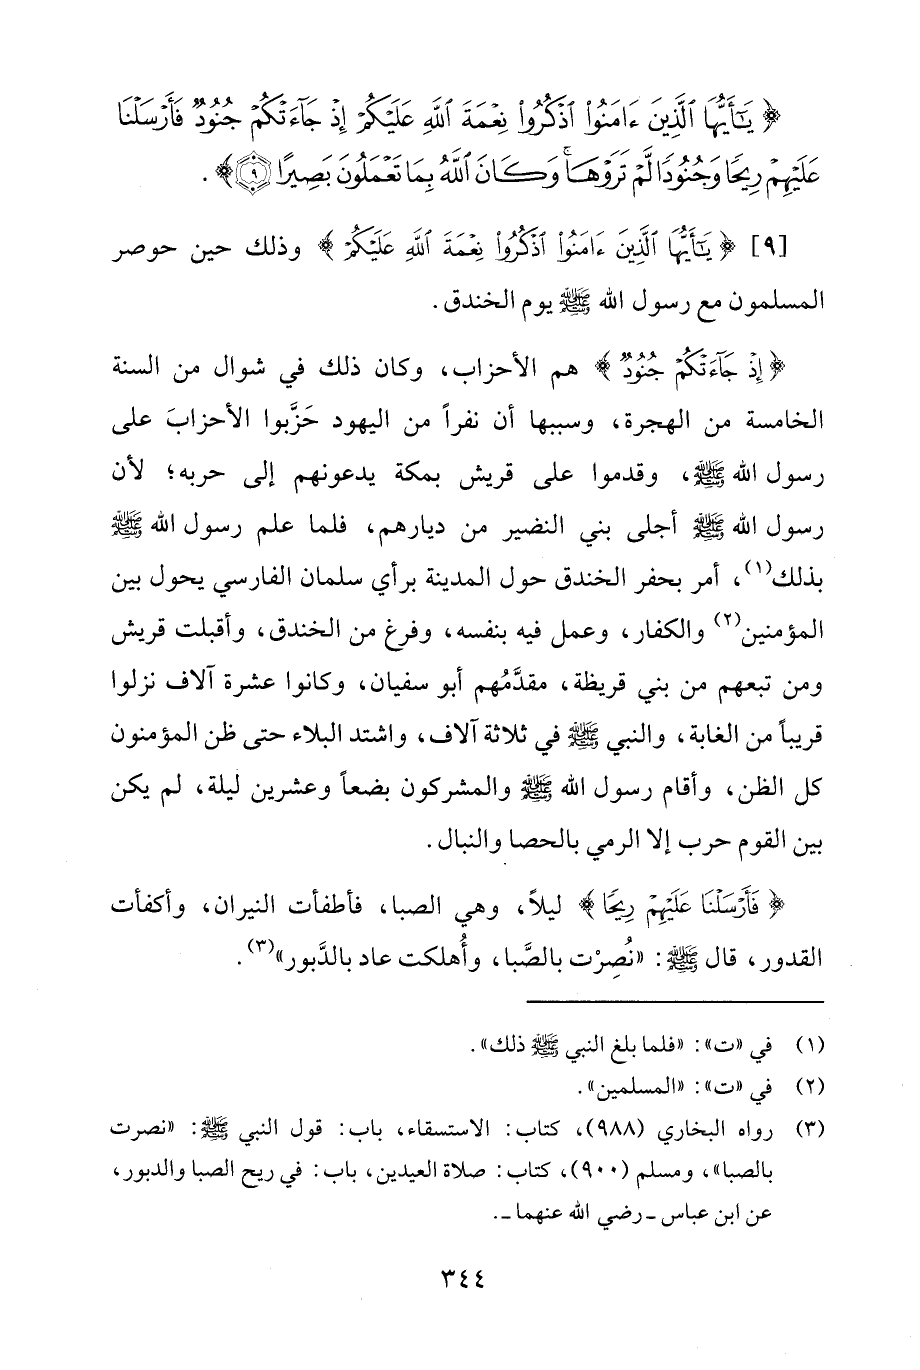 ﴿ يَٰٓأَيُّهَا ٱلَّذِينَ ءَامَنُوا۟ ٱذْكُرُوا۟ نِعْمَةَ ٱللَّهِ عَلَيْكُمْ إِذْ جَآءَتْكُمْ جُنُودٌ فَأَرْسَلْنَا
عَلَيْهِمْ رِيحًا وَجُنُودًا لَّمْ تَرَوْهَا ۚ وَكَانَ ٱللَّهُ بِمَا تَعْمَلُونَ بَصِيرًا ۝٩﴾ .
[٩] ﴿ يَٰٓأَيُّهَا ٱلَّذِينَ ءَامَنُوا۟ ٱذْكُرُوا۟ نِعْمَةَ ٱللَّهِ عَلَيْكُمْ ﴾ وذلك حين حوصر
المسلمون مع رسول الله ﷺ يوم الخندق .
﴿ إِذْ جَآءَتْكُمْ جُنُودٌ ﴾ هم الأحزاب، وكان ذلك في شوال من السنة
الخامسة من الهجرة، وسببها أن نفراً من اليهود حَزَّبوا الأحزابَ على
رسول الله ﷺ، وقدموا على قريش بمكة يدعونهم إلى حربه؛ لأن
رسول الله ﷺ أجلى بني النضير من ديارهم، فلما علم رسول الله ﷺ
بذلك(١)، أمر بحفر الخندق حول المدينة برأي سلمان الفارسي يحول بين
المؤمنين(٢) والكفار، وعمل فيه بنفسه، وفرغ من الخندق، وأقبلت قريش
ومن تبعهم من بني قريظة، مقدَّمُهم أبو سفيان، وكانوا عشرة آلاف نزلوا
قريباً من الغابة، والنبي ﷺ في ثلاثة آلاف، واشتد البلاء حتى ظن المؤمنون
كل الظن، وأقام رسول الله ﷺ والمشركون بضعاً وعشرين ليلة، لم يكن
بين القوم حرب إلا الرمي بالحصا والنبال .
﴿ فَأَرْسَلْنَا عَلَيْهِمْ رِيحًا ﴾ ليلاً، وهي الصبا، فأطفأت النيران، وأكفأت
القدور، قال ﷺ: «نُصِرْت بالصَّبا، وأُهلكت عاد بالدَّبور»(٣).
(١) في «ت»: «فلما بلغ النبي ﷺ ذلك».
(٢) في «ت»: «المسلمين».
(٣) رواه البخاري (٩٨٨)، كتاب: الاستسقاء، باب: قول النبي ﷺ: «نصرت
بالصبا»، ومسلم (٩٠٠)، كتاب: صلاة العيدين، باب: في ريح الصبا والدبور،
عن ابن عباس ـ رضي الله عنهما ـ.
٣٤٤